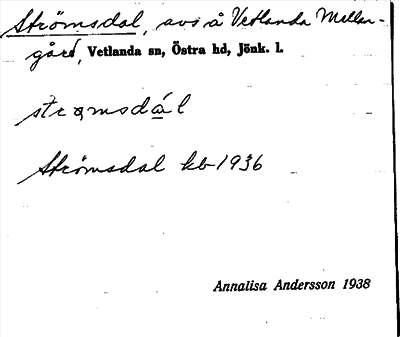 Strömsdal, avs å Vetlanda Mellan-
gård, Vetlanda sn, Östra hd, Jönk. l.
strømsdál
Strömsdal kb 1936
Annalisa Andersson 1938